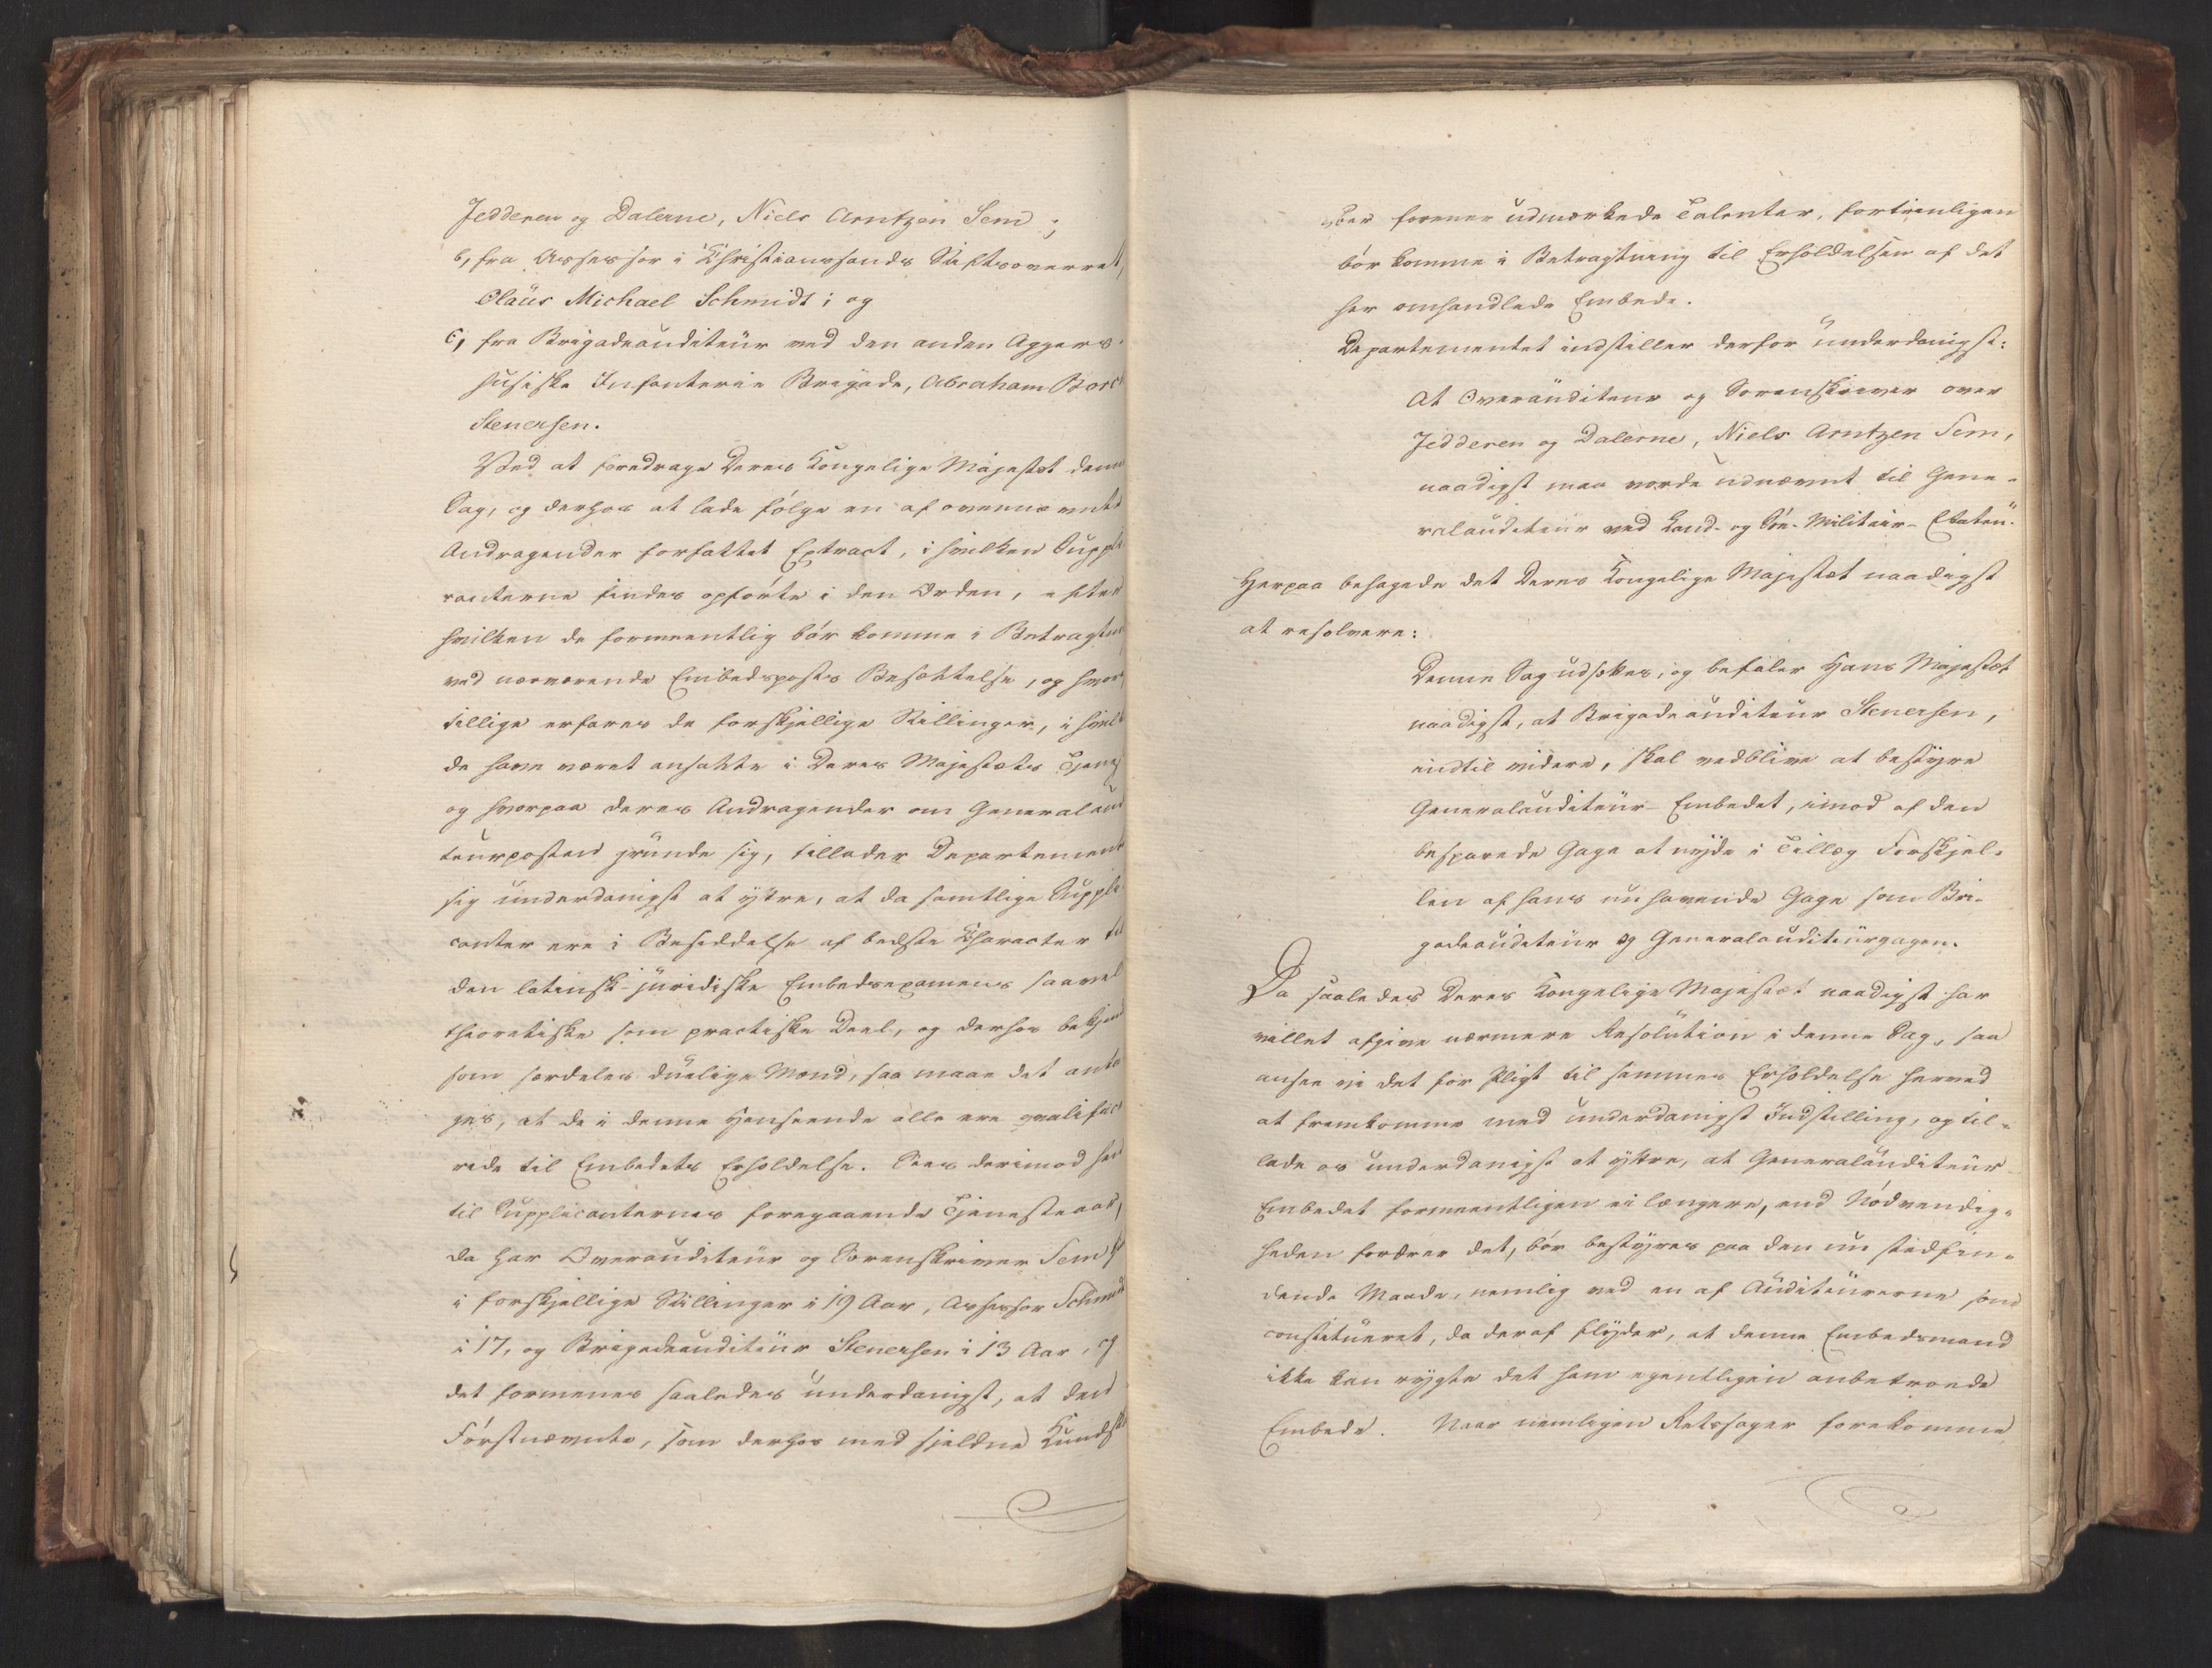 Jedderen og Dalerne, Niels Arntzen Sem;
b, fra Assessor i Christianssands Stiftsoverret,
Claüs Michael Schmidt; og
c, fra Brigadeauditeur ved den anden Aggers-
husiske Infanterie Brigade, Abraham Borch
Stenersen.
Ved at foredrage Deres Kongelige Majestæt denne
Sag, og derhos at lade følge en af ovennævnte
Andragender forfattet Extract, i hvilken Suppli
canterne findes opførte i den Orden, efter
hvilken de formeentlig bør komme i Betragtn
ved nærværende Embedsposts Besættelse, og hvor
tillige erfares de forskjellige Stillinger, i hvilk
de have været ansatte i Deres Majestæts Tjenes
og hvorpaa deres Andragender om Generalaud
teurposten grunde sig, tillader Departement
sig underdanigst at yttre, at da samtlige Suppli
canter ere i Besiddelse af bedste Character til
den latinsk-juridiske Embedsexamens saavel
theoretiske som practiske Deel, og derhos bekjend
som særdeles duelige Mænd, saa maae det anta
ges, at de i denne Henseende alle ere qvalifice
rede til Embedets Erholdelse. Sees derimod hen
til Supplicanternes foregaaende Tjenesteaar,
da har Overauditeur og Sorenskriver Sem
i forskjellige Stillinger i 19 Aar, Assessor Schmidt
i 17, og Brigadeauditeur Stenersen i 13 Aar, og
det formenes saaledes underdanigst, at den
Førstnævnte, som derhos med sjeldne Kundsk
ber forener udmærkede Talenter, fortrinligen
bør komme i Betragtning til Erholdelsen af det
her omhandlede Embede.
Departementet indstiller derfor underdanigst:
At Overauditeur og Sorenskriver over
Jedderen og Dalerne, Niels Arntzen Sem,
naadigst maa vorde udnævnt til Gene-
ralauditeur ved Land- og Søe-Militair-Etaten.
Herpaa behagede det Deres Kongelige Majestæt naadigst
at resolvere:
Denne Sag udsættes, og befaler Hans Majestæt
naadigst, at Brigadeauditeur Stenersen,
indtil videre, skal vedblive at bestyre
Generalauditeur-Embedet, imod af den
besparede Gage at nyde i Tillæg Forskjel-
len af hans nuhavende Gage som Bri-
gadeauditeur og Generalauditeurgagen.
Da saaledes Deres Kongelige Majestæt naadigst har
villet afgive nærmere Resolution i denne Sag, saa
ansee vi det for Pligt til sammes Erholdelse herved
at fremkomme med underdanigst Indstilling, og til-
lade os underdanigst at yttre, at Generalauditeur-
Embedet formeentligen ei længere, end Nødvendig-
heden fordrer det, bør bestyres paa den nu stedfin-
dende Maade, nemlig ved en af Auditeurerne som
constitueret, da deraf flyder, at denne Embedsmand
ikke kan rygte det ham egentligen anbetroede
Embede. Naar nemligen Retssager forekomme